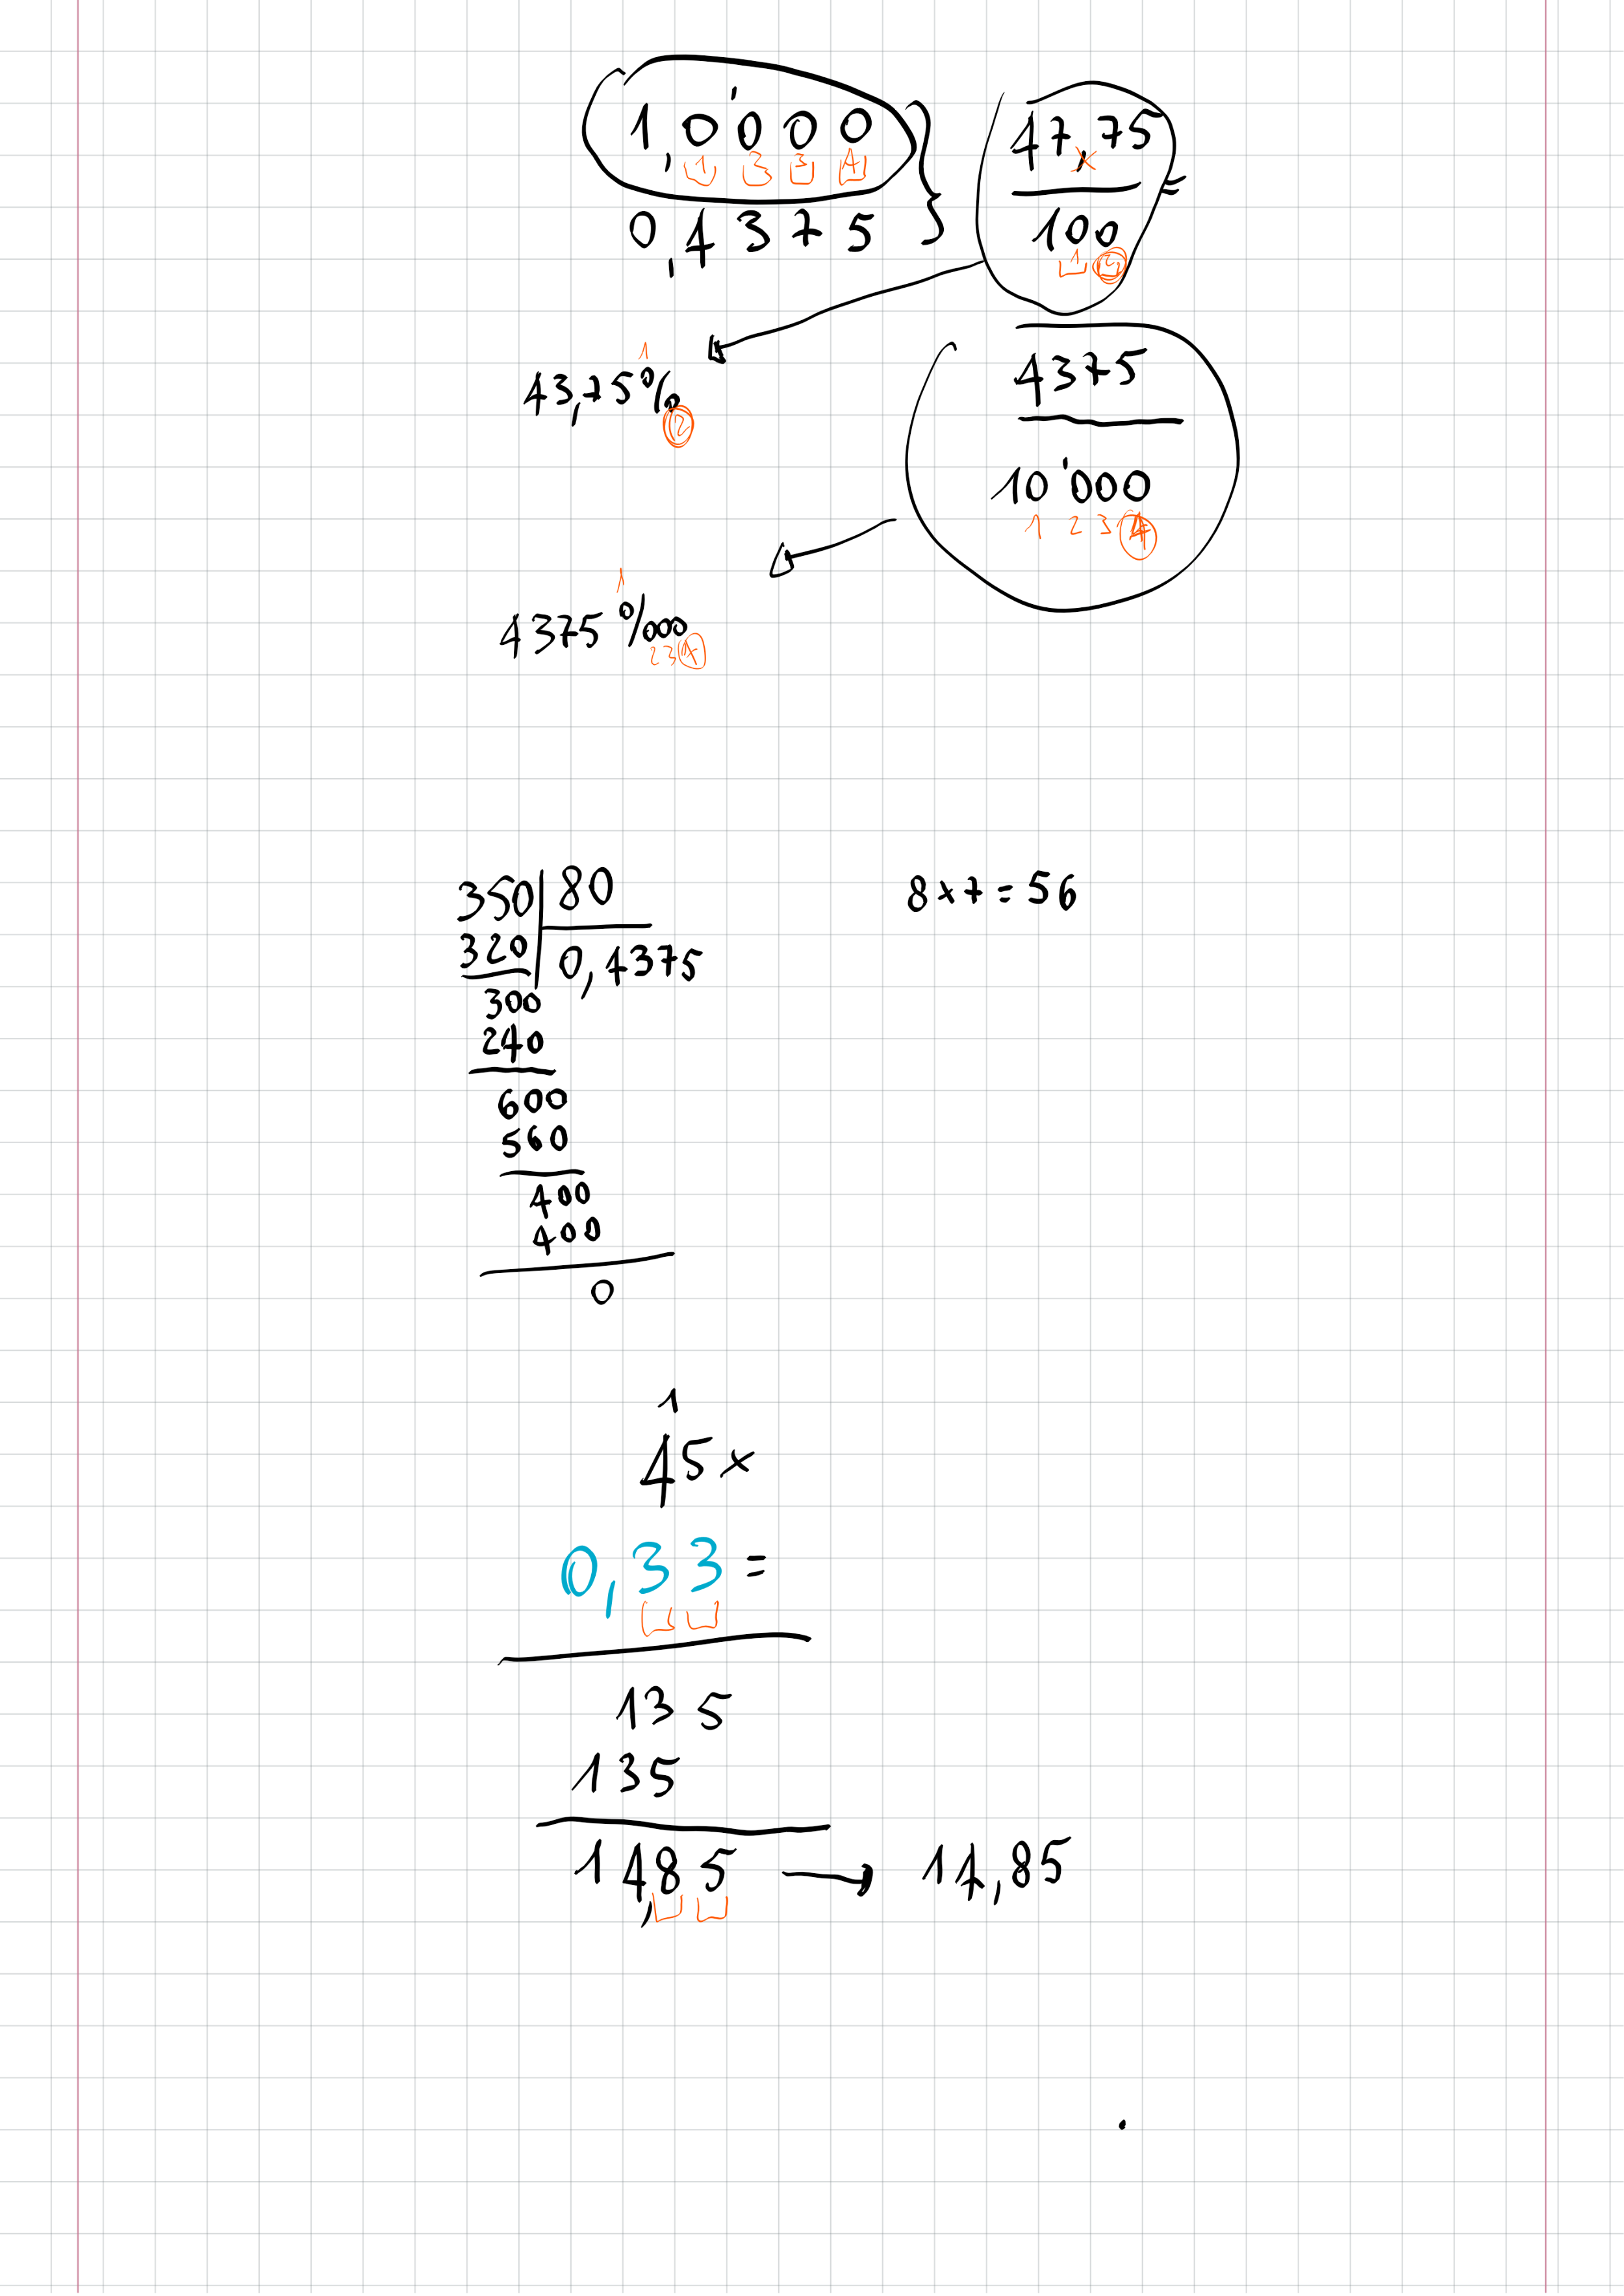 1,0'000
1 2 3 4
0,4375
47,75
100
1 2
=
1
43,75%
2
4375
10'000
1 2 3 4
1
4375 %000
2 3 4
350 | 80
320 | 0,4375
300
240
600
560
400
400
0
8 x 7 = 56
1
45 x
0,33 =
135
135
14,85 → 14,85